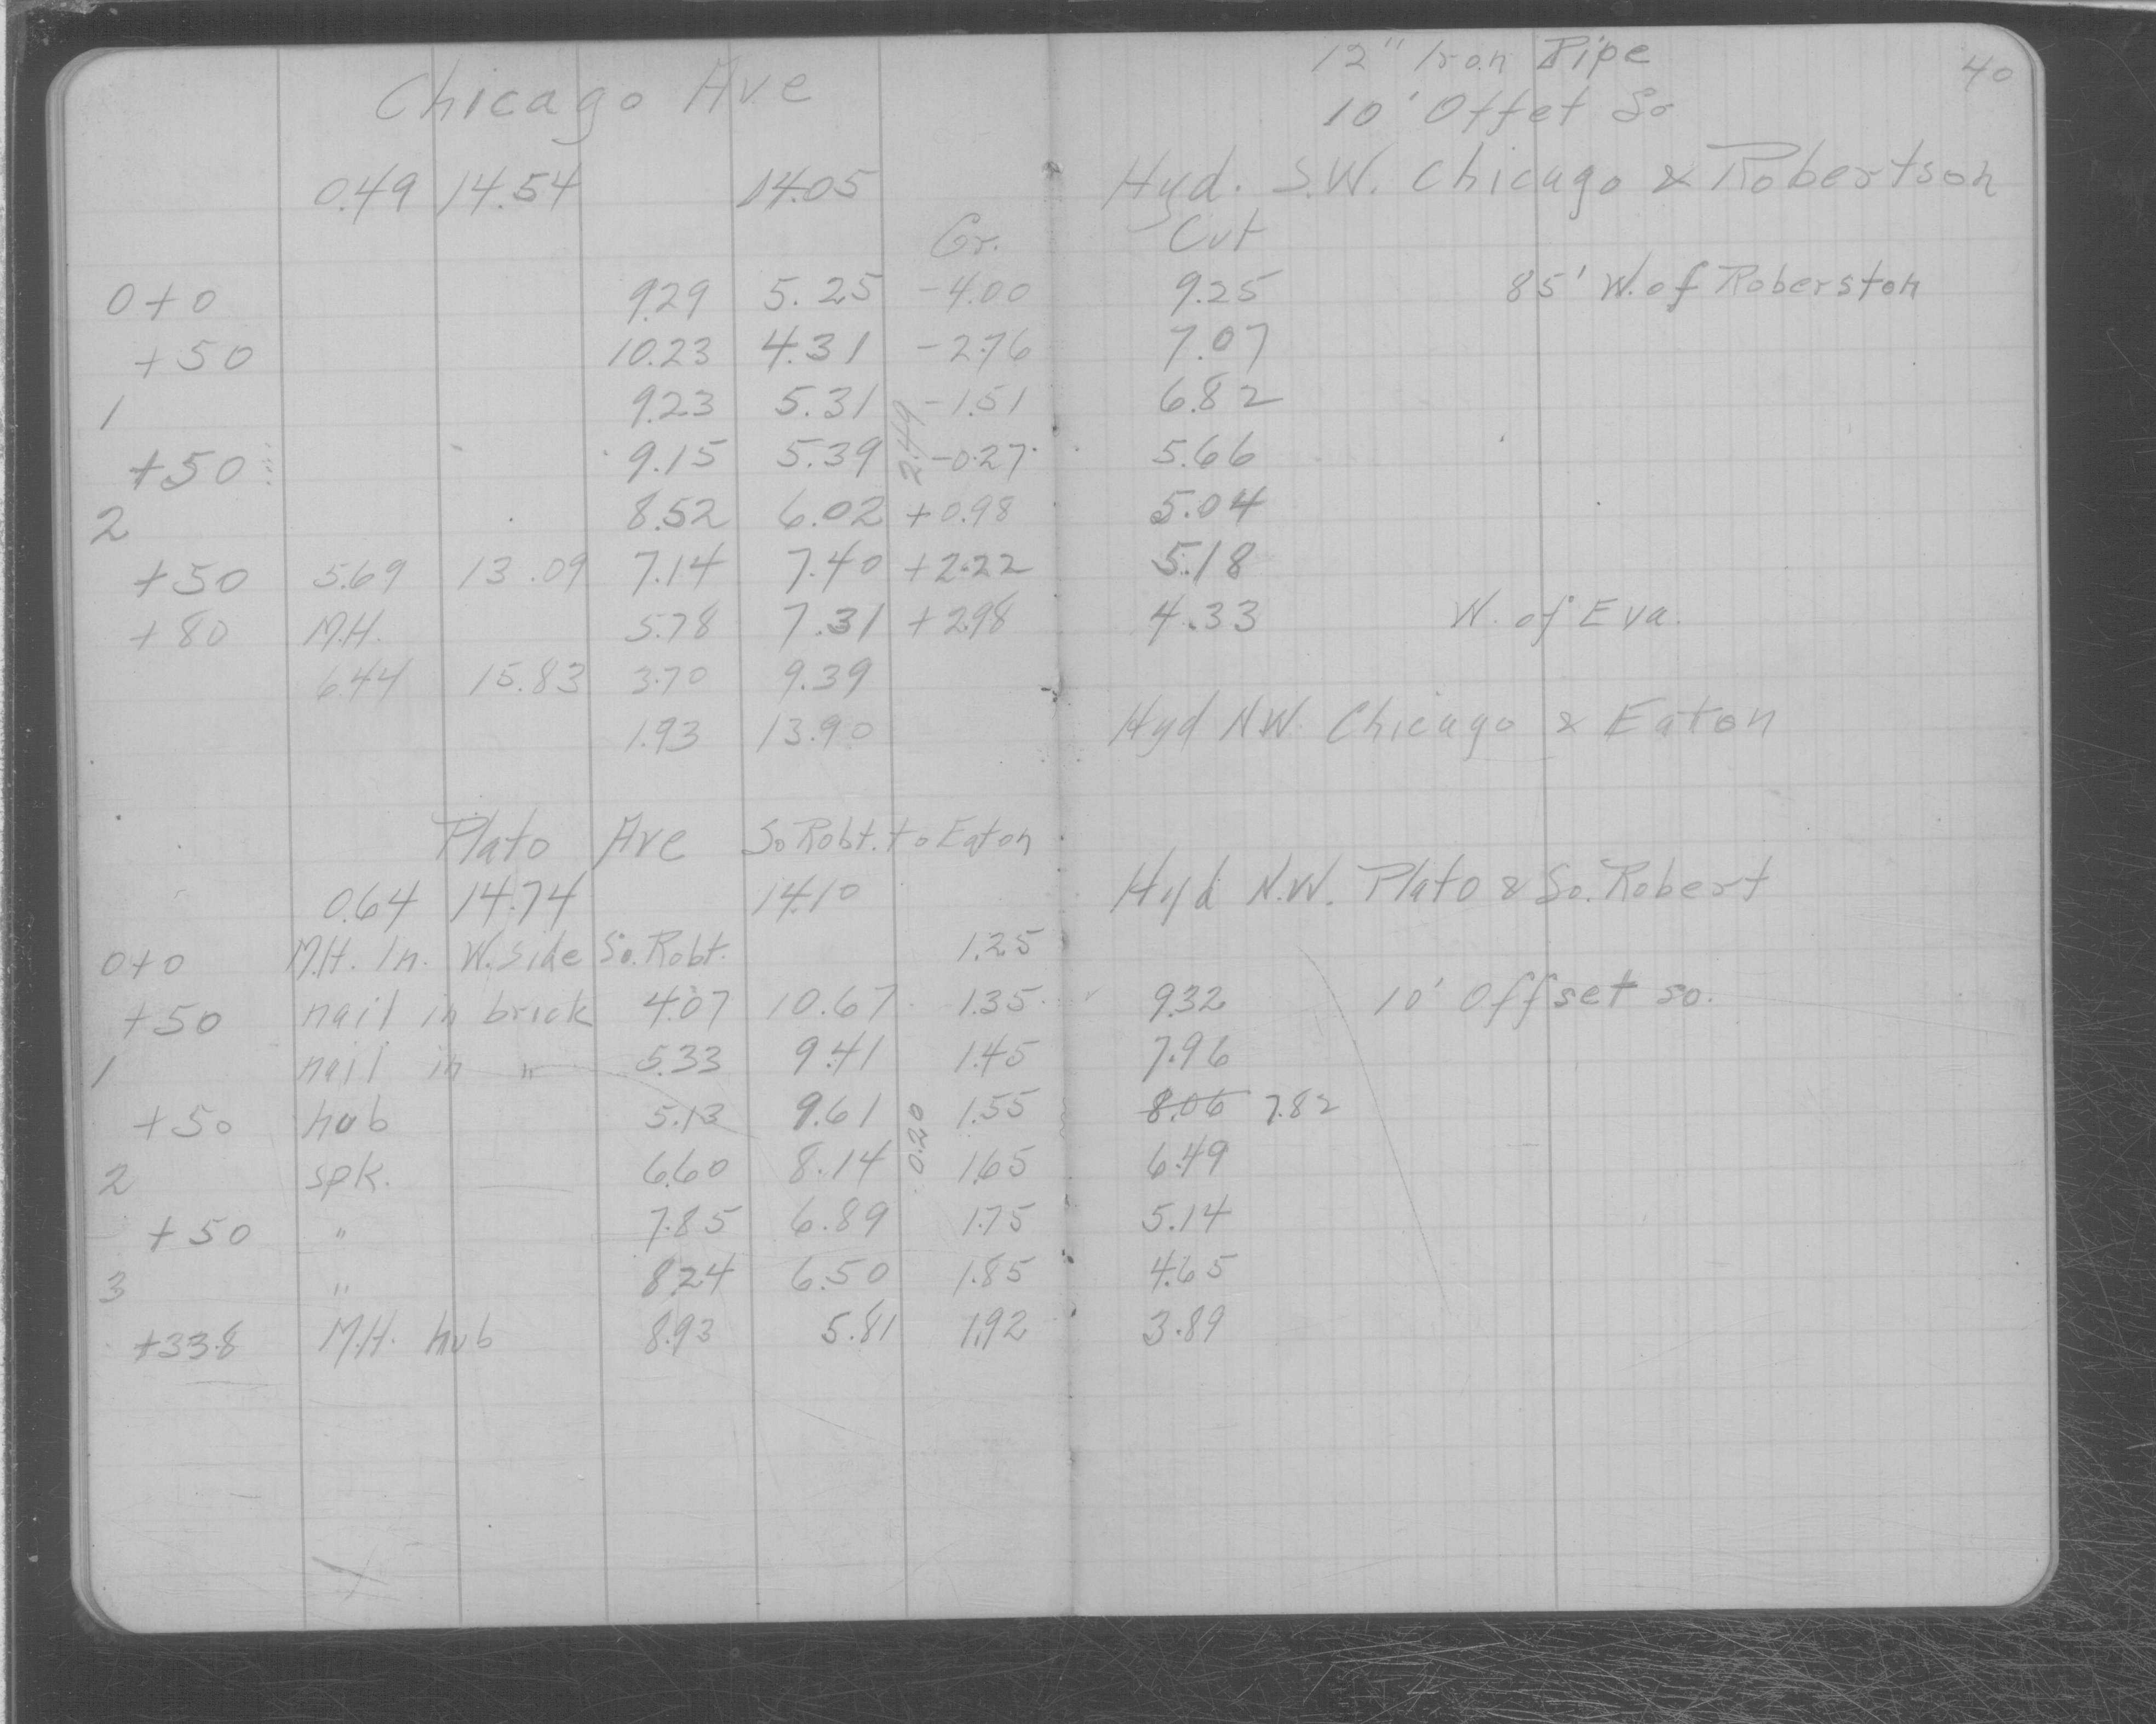 12" Iron Pipe 40
Chicago Ave 10' Offet So
0.49 14.54 14.05 Hyd. S.W. Chicago & Robertson
Gr. Cut
0+0 9.29 5.25 -4.00 9.25 85' W. of Roberston
+50 10.23 4.31 -2.76 7.07
1 9.23 5.31 -1.51 6.82
2.49
+50 9.15 5.39 -0.27 5.66
2 8.52 6.02 +0.98 5.04
+50 5.69 13.09 7.14 7.40 +2.22 5.18
+80 M.H. 5.78 7.31 +2.98 4.33 W. of Eva.
6.44 15.83 3.70 9.39
1.93 13.90 Hyd N.W. Chicago & Eaton
Plato Ave So Robt. to Eaton
0.64 14.74 14.10 Hyd N.W. Plato & So. Robert
0+0 M.H. In. W. side So. Robt. 1.25
+50 nail in brick 4.07 10.67 1.35 9.32 10' Offset so.
1 nail in " 5.33 9.41 1.45 7.96
+50 hub 5.13 9.61 1.55 8.06 7.82
0.20
2 spk. 6.60 8.14 1.65 6.49
+50 " 7.85 6.89 1.75 5.14
3 " 8.24 6.50 1.85 4.65
+33.8 M.H. hub 8.93 5.81 1.92 3.89